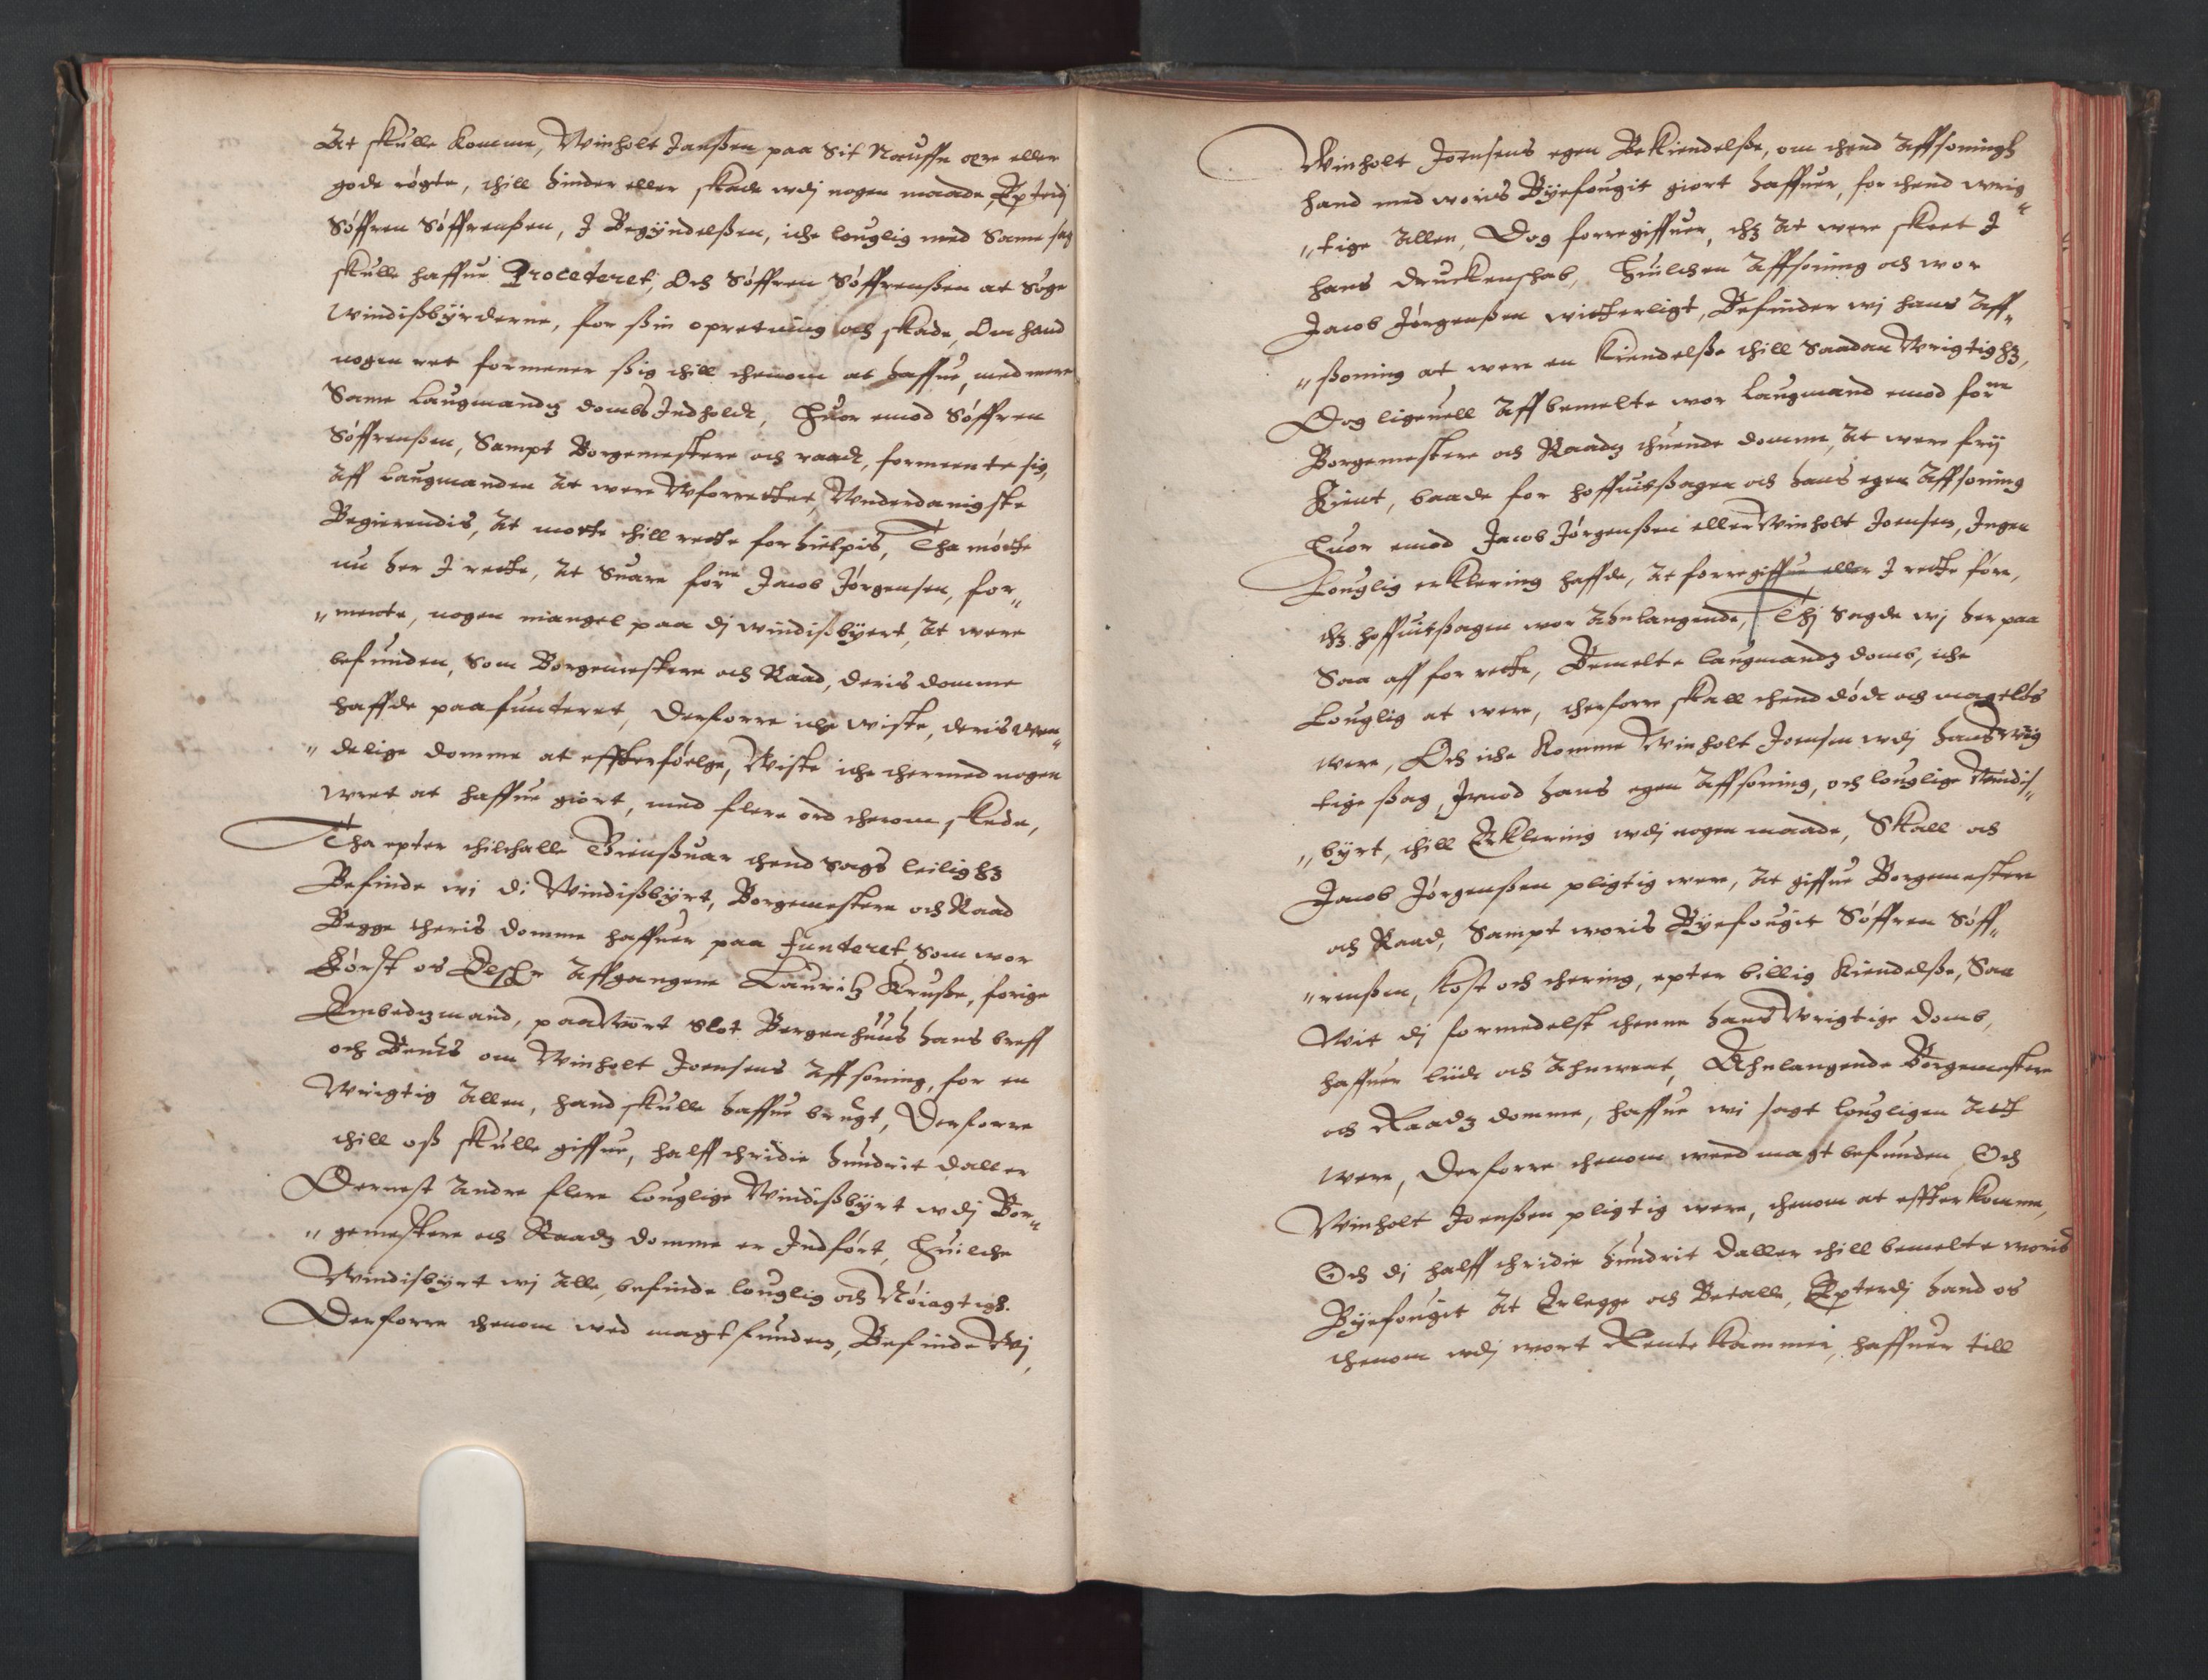 At skulle komme, Winholt Janßen paa Sit Naffn ære eller
gode røgte, thill hinder eller skade wdj nogen maade, Epterdj
Søffren Søffrenßen, J Begÿndelßen, iche louglig med Same sag
skulle haffue Proceteret, Och Søffren Søffrenßen at Søge
windißbÿrderne, for ßin opretning och skade, Om hand
nogen ret formener ßig thill thenom at haffue, med mere
Same Laugmandz dombs Indholdt, Huor emod Søffren
Søffrenßen, Sampt Borgemestere och raadt, formeente sig,
Aff Laugmanden At were Wforrettet, Wnderdanigste
Begierendis, At motte thill rette forhielpis, Tha møtte
nu her J rette, At Suare forne Jacob Jørgensen, for„
„mente, nogen mangel paa dj windißbÿrt, At were
befunden, Som Borgemestere och Raad, deris domme
haffde paa funteret, Derforre iche wiste, deris wen„
„delige domme at effterføelge, Wiste iche thermed nogen
wret at haffue giort, med flere ord therom skede,
Tha epter thilthalle Giensuar thend Sags leilighz
Befinde wi di Windißbÿrt, Borgemestere och Raad
Begge theris domme haffuer paa funteret, Som wor
Først os Elsche Affgangene Lauritz Kruße, forige
Embedzmand, paa Wort Slot Bergenhuus hans breff
och Beuis om Winholt Joensens Affsoning, for en
Wrigtig Allen, hand skulle haffue brugt, Derforre
thill oß skulle giffue, halff thridie hundrit daller
Dernest Andre flere Louglige Windißbÿrt wdj Bor„
„gemestere och Raadz domme er Indført, Huilche
Windisbÿrt wj Alle, befinde louglig och Nøiagtigh.
Derforre thenom wed magt funden, Befinde Wj,
Winholt Joensens egen Bekiendelße, om thend Affsoningh
hand med woris Bÿefougit giort haffuer, for thend wrig„
„tige Allen, Dog forregiffuer, thz At were skeet J
hans druckenschab, Huilchen Affsoning och wor
Jacob Jørgenßen witterligt, Befinder wj hans Aff„
„ßoning at were en Kiendelße thill Saadan Wrigtighz,
Dog ligeuell Aff bemelte wor Laugmand emod forne
Borgemestere och Raadz thuende domme, At were frij
Kient, baade for hoffuitßagen och hans egen Affsoning
Huor emod Jacob Jørgenßen eller Winholt Joensen, Ingen
Louglig erklering haffde, At forregiffue eller J rette føre,
thz hoffuitßagen wor Ahnlangende, Thj Sagde wj her paa
Saa aff for rette, Bemelte laugmandz domb, iche
Louglig at were, therforre skall thend død och magtløs
were, Och iche komme Winholt Joensen wdj hans wrig
tige ßag, Jemod hans egen Affsoning, och louglige Windis„
„bÿrt, thill Erklering wdj nogen maade, Skall och
Jacob Jørgenßen pligtig were, At giffue Borgemestere
och Raad, Sampt woris Bÿefougit Søffren Søff„
„renßen, Kost och thering, epter billig Kiendelße, Saa
Wit dj formedelst thenne hans Wrigtige domb,
haffuer liidt och Ahnwent, Ahnlangende Borgemestere
och Raadz domme, haffue wi sagt lougligen Att
were, Derforre thenom weed magt befunden Och
Winholt Joenßen pligtig were, thenom at effterkomme,
Och dj halff thridie hundrit daller thill bemelte woris
Bÿefougit At Erlegge och Betalle, Epterdj hand os
thenom wdj wort Rente Kammer, haffuer till